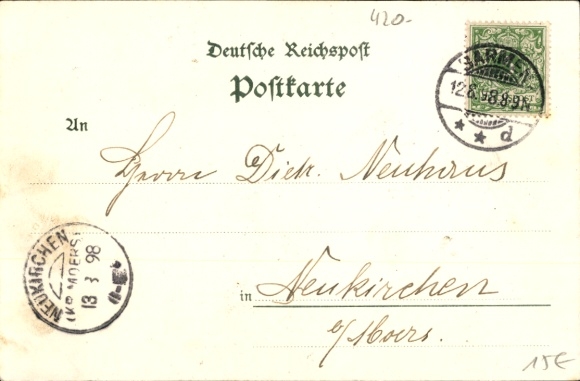 420.-
Deutsche Reichspost
Postkarte
BARMEN
12.8.98.8-9N.
** d
An
Herrn Dick. Neuhaus
NEUKIRCHEN
(KR. MOERS)
13 8 98
in Neukirchen
b/Moers.
15€